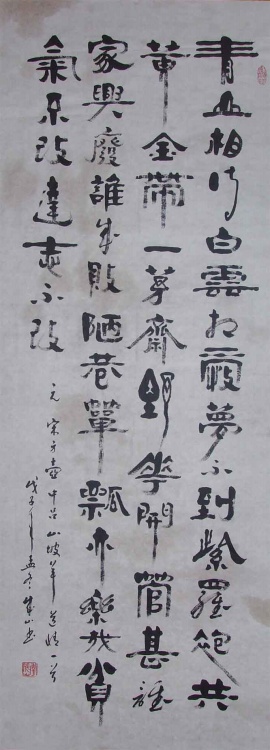 青山相待白雲相愛夢不到紫羅袍共
黄金帶一茅齋野華開管甚誰
家興廢誰成敗陋巷簞瓢亦樂哉貧
氣不改達志不改
元 宋方壺 中吕 山坡羊 道情一首
戊子年孟冬 山书